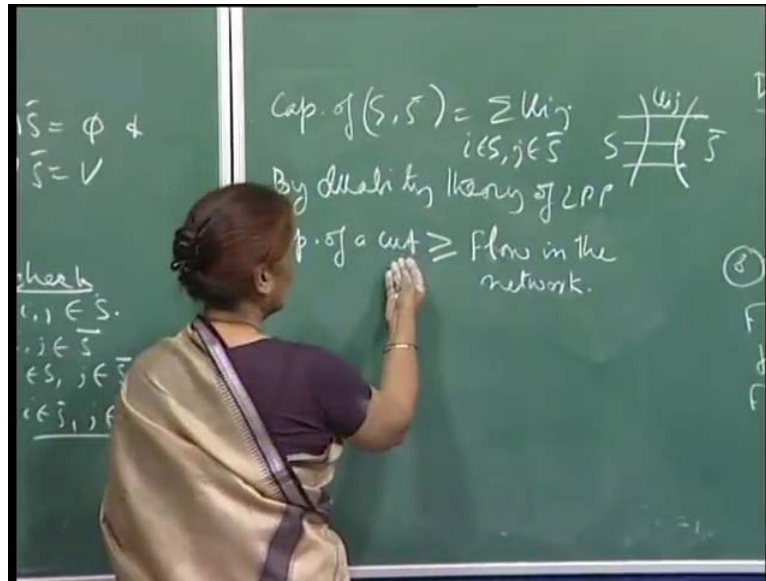 S̄ = φ &
S̄ = V
check
i, j ∈ S.
j ∈ S̄
∈ S, j ∈ S̄
i ∈ S̄, j ∈
Cap. of (S, S̄) = Σ uij
i∈S, j∈S̄
uij
S S̄
By duality theory of LPP
p. of a cut ≥ Flow in the
network.
8
F
F